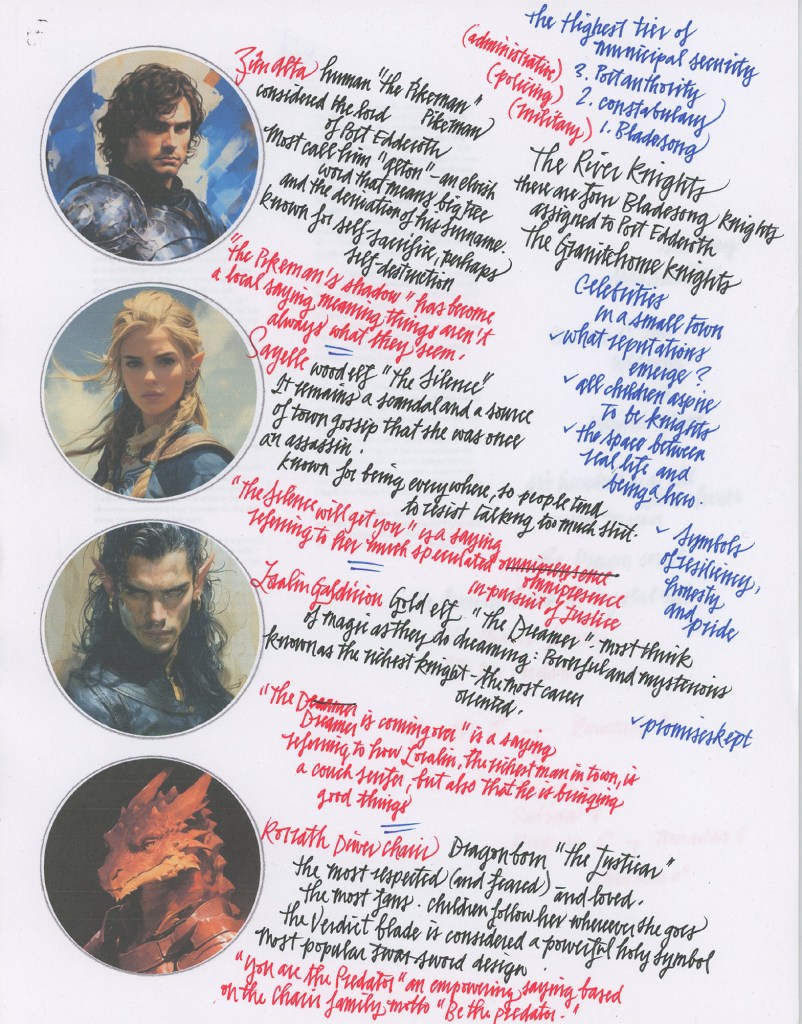 the Highest tier of
municipal security
(administrative) 3. Port authority
(policing) 2. constabulary
(military) 1. Bladesong
The River Knights
there are four Bladesong Knights
assigned to Port Edderoth
The Granitehome Knights
Celebrities
in a small town
✓ what reputations
emerge?
✓ all children aspire
to be knights
✓ the space between
real life and
being a hero.
✓ symbols
of resiliency,
honesty
and
pride
✓ promises kept
human "the Pikeman"
Pikeman
considered the lord
of Port Edderoth
Most call him - an elvish
word that means big tree
and the derivation of his surname.
known for self-sacrifice, perhaps
self-destruction
"the Pikeman's shadow" has become
a local saying meaning things aren't
always what they seem.
Sayelle wood elf "The Silence"
It remains a scandal and a source
of town gossip that she was once
an assassin.
known for being everywhere, so people tend
to resist talking too much shit.
"The Silence will get you" is a saying
referring to her much speculated
omnipresence
in pursuit of Justice
Gold elf "The Dreamer" - most think
of magic as they do dreaming: Powerful and mysterious
known as the richest knight - the most career
oriented.
"The Dreamer
Dreamer is coming over" is a saying
referring to how the richest man in town, is
a couch surfer, but also that he is bringing
good things
Dragonborn "the Justicar"
the most respected (and feared) and loved.
the most fans. children follow her wherever she goes
the Verdict Blade is considered a powerful holy symbol
most popular sword design
"you are the Predator" an empowering saying based
on the Chair family motto "Be the predator."